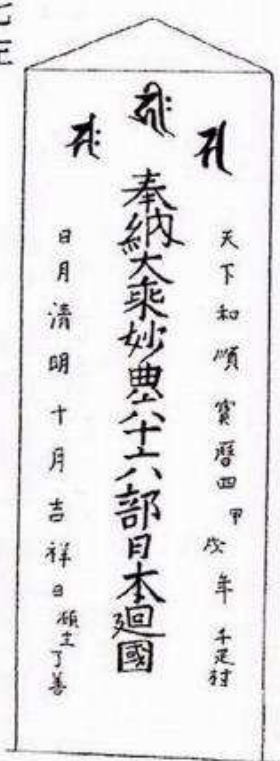 天下和順 寳暦四甲戌年 千足村
奉納大乘妙典六十六部日本廻國
日月清明 十月吉祥日 願主了善